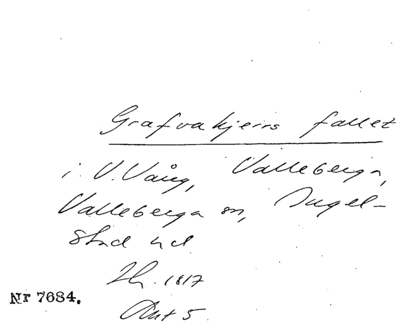 Grafvakjerrs fallet
i V. Vång, Valleberga,
Valleberga sn, Ingel-
stad hd.
Lh. 1817
Akt 5.
Nr 7684.